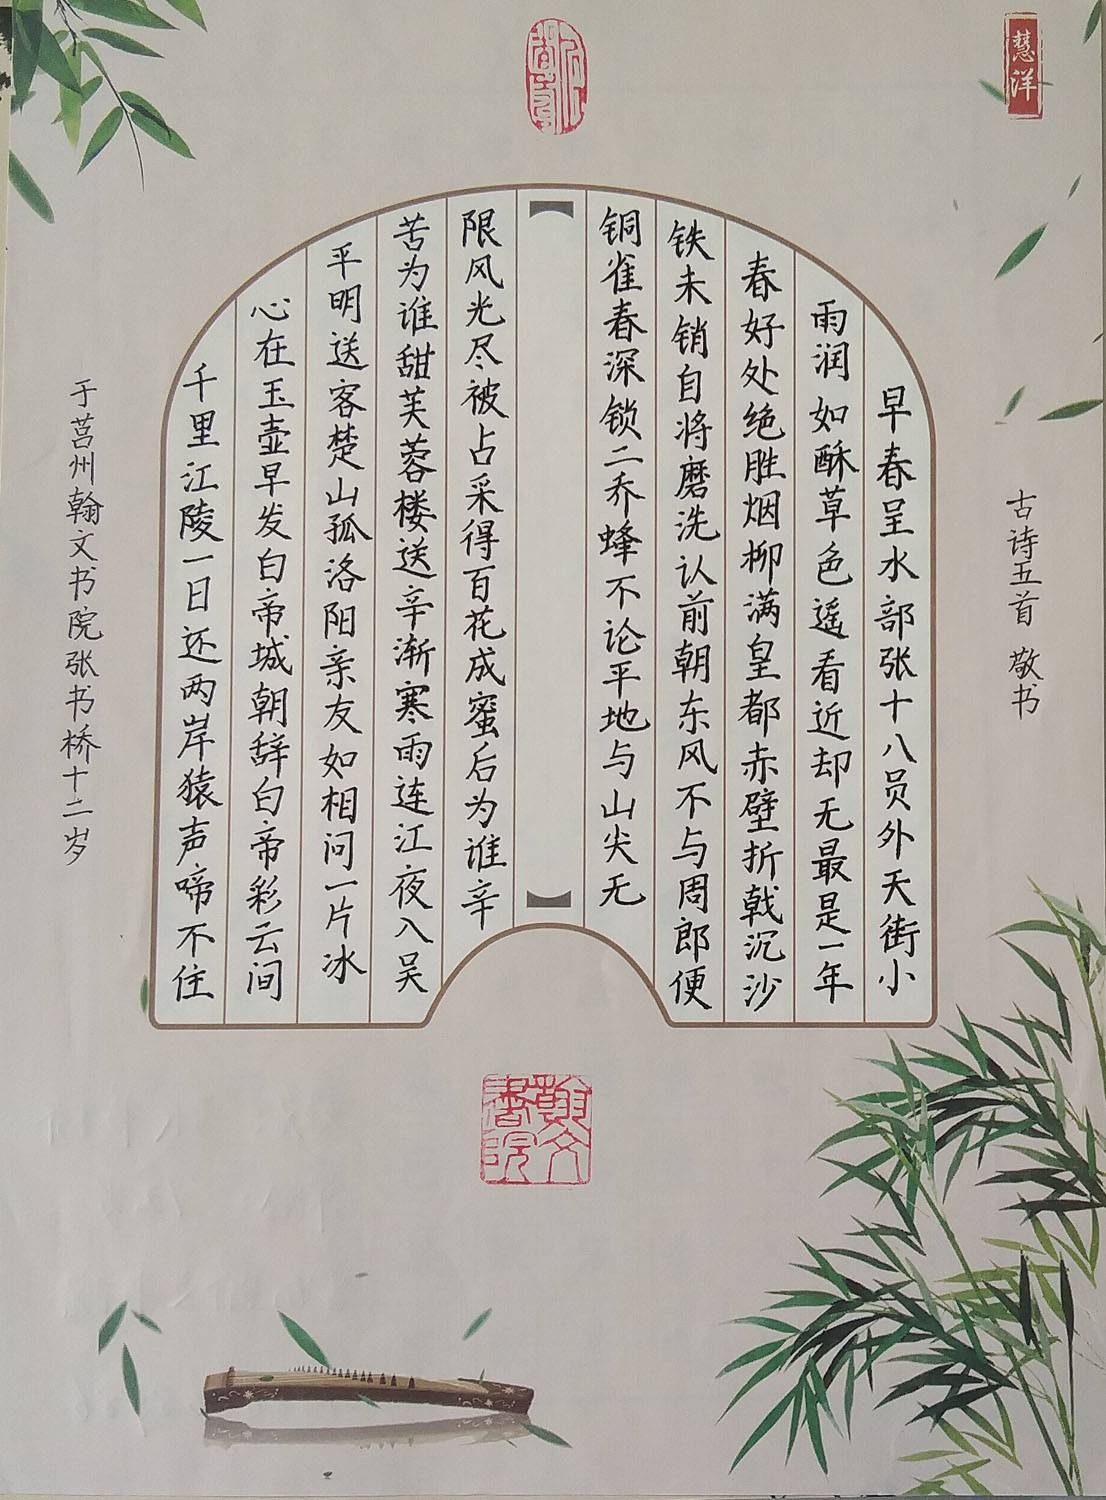 慧洋
古诗五首 敬书
早春呈水部张十八员外天街小
雨润如酥草色遥看近却无最是一年
春好处绝胜烟柳满皇都赤壁折戟沉沙
铁未销自将磨洗认前朝东风不与周郎便
铜雀春深锁二乔蜂不论平地与山尖无
限风光尽被占采得百花成蜜后为谁辛
苦为谁甜芙蓉楼送辛渐寒雨连江夜入吴
平明送客楚山孤洛阳亲友如相问一片冰
心在玉壶早发白帝城朝辞白帝彩云间
千里江陵一日还两岸猿声啼不住
于莒州翰文书院张书桥十二岁
翰文書院